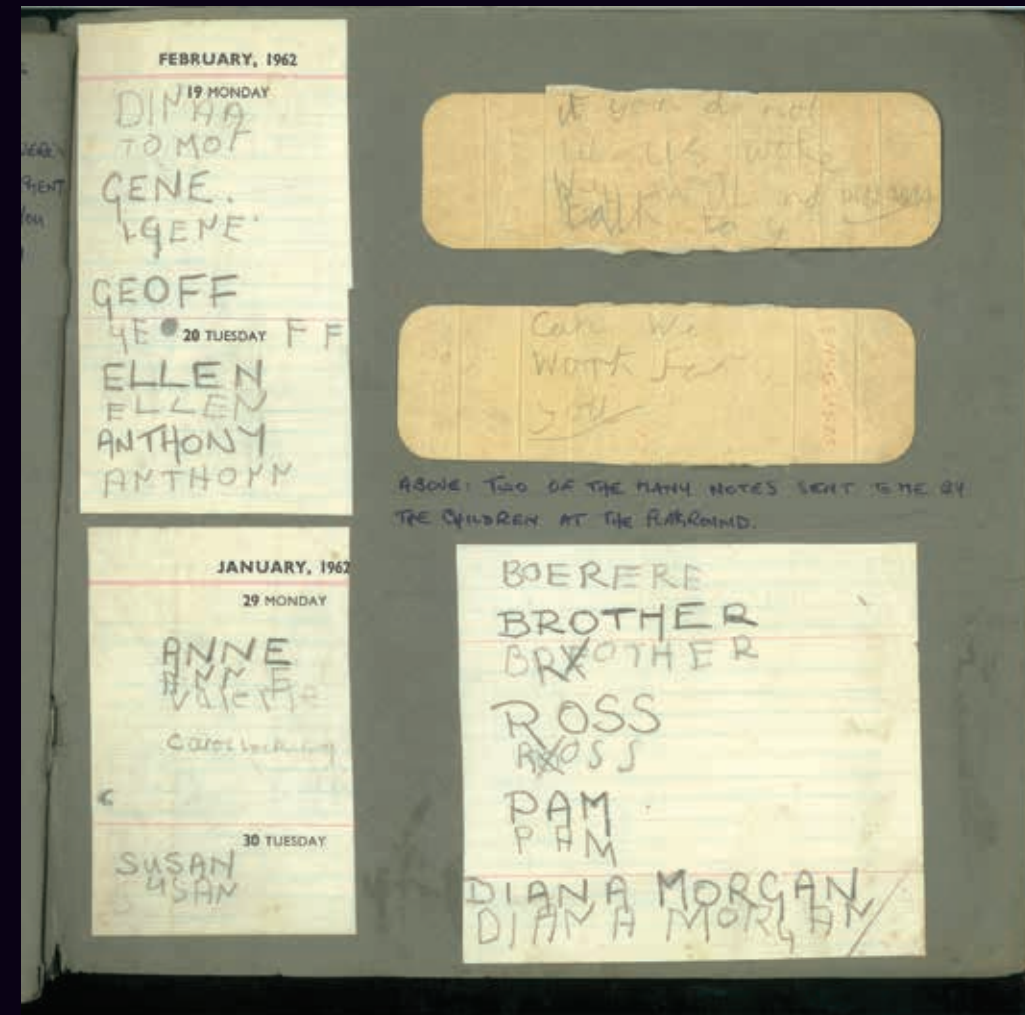 FEBRUARY, 1962
19 MONDAY
DINAA
TOMOT
GENE.
IGENE
GEOFF
GE FF
20 TUESDAY
ELLEN
ELLEN
ANTHONY
ANTHONY
JANUARY, 1962
29 MONDAY
ANNE
ANNE
Valerie
Carol
30 TUESDAY
SUSAN
USAN
you do not
US
and
talk to
Can We
Work for
you
ABOVE: TWO OF THE MANY NOTES SENT TO ME BY
THE CHILDREN AT THE PLAYGROUND.
BOERERE
BROTHER
BROTHER
ROSS
ROSS
PAM
PAM
DIANA MORGAN
DIANA MORGAN